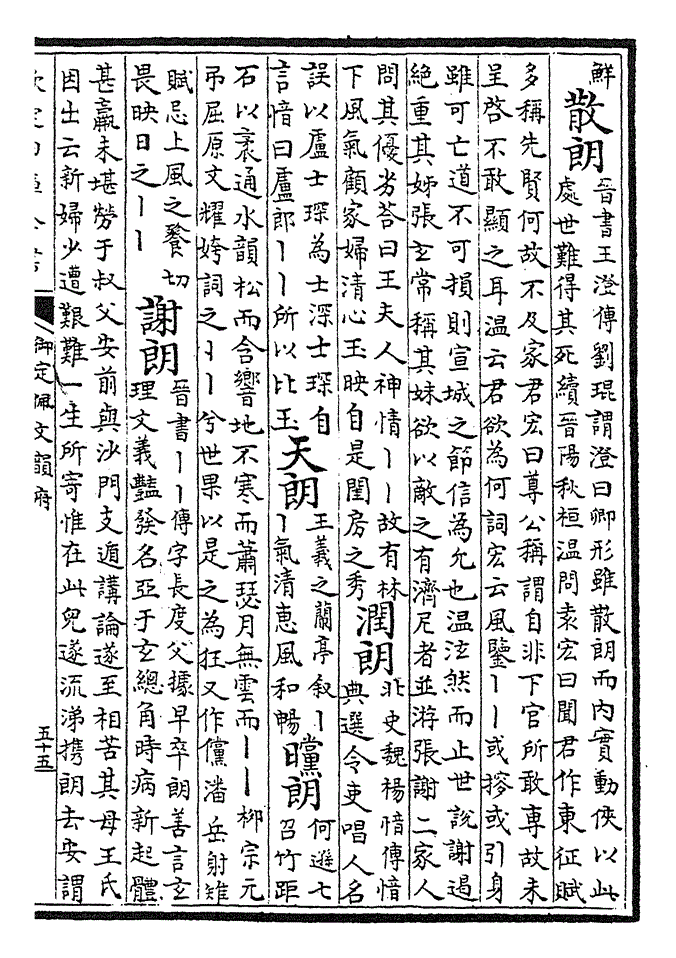 鮮
散朗
晉書王澄傳劉琨謂澄曰卿形雖散朗而內實動俠以此
處世難得其死續晉陽秋桓温問袁宏曰聞君作東征賦
多稱先賢何故不及家君宏曰尊公稱謂自非下官所敢専故未
呈啓不敢顯之耳温云君欲為何詞宏云風鑒丨丨或搜或引身
雖可亡道不可損則宣城之節信為允也温泫然而止世說謝遏
絶重其姊張玄常稱其妹欲以敵之有濟尼者並游張謝二家人
問其優劣荅曰王夫人神情丨丨故有林
下風氣顧家婦清心玉映自是閨房之秀
潤朗
北史魏楊愔傳愔
典選令吏唱人名
誤以盧士琛為士深士琛自
言愔曰盧郎丨丨所以比玉
天朗
王羲之蘭亭叙丨
丨氣清惠風和暢
曭朗
何遜七
召竹距
石以裛通水韻松而含響地不寒而蕭瑟月無雲而丨丨柳宗元
弔屈原文耀姱詞之丨丨兮世果以是之為狂又作儻潘岳射雉
賦忌上風之餮切
畏映日之丨丨
謝朗
晉書丨丨傳字長度父據早卒朗善言玄
理文義豔發名亞于玄總角時病新起體
甚羸未堪勞于叔父安前與沙門支遁講論遂至相苦其母王氏
因出云新婦少遭艱難一生所寄惟在此兒遂流涕携朗去安謂
御定佩文韻府
五十五